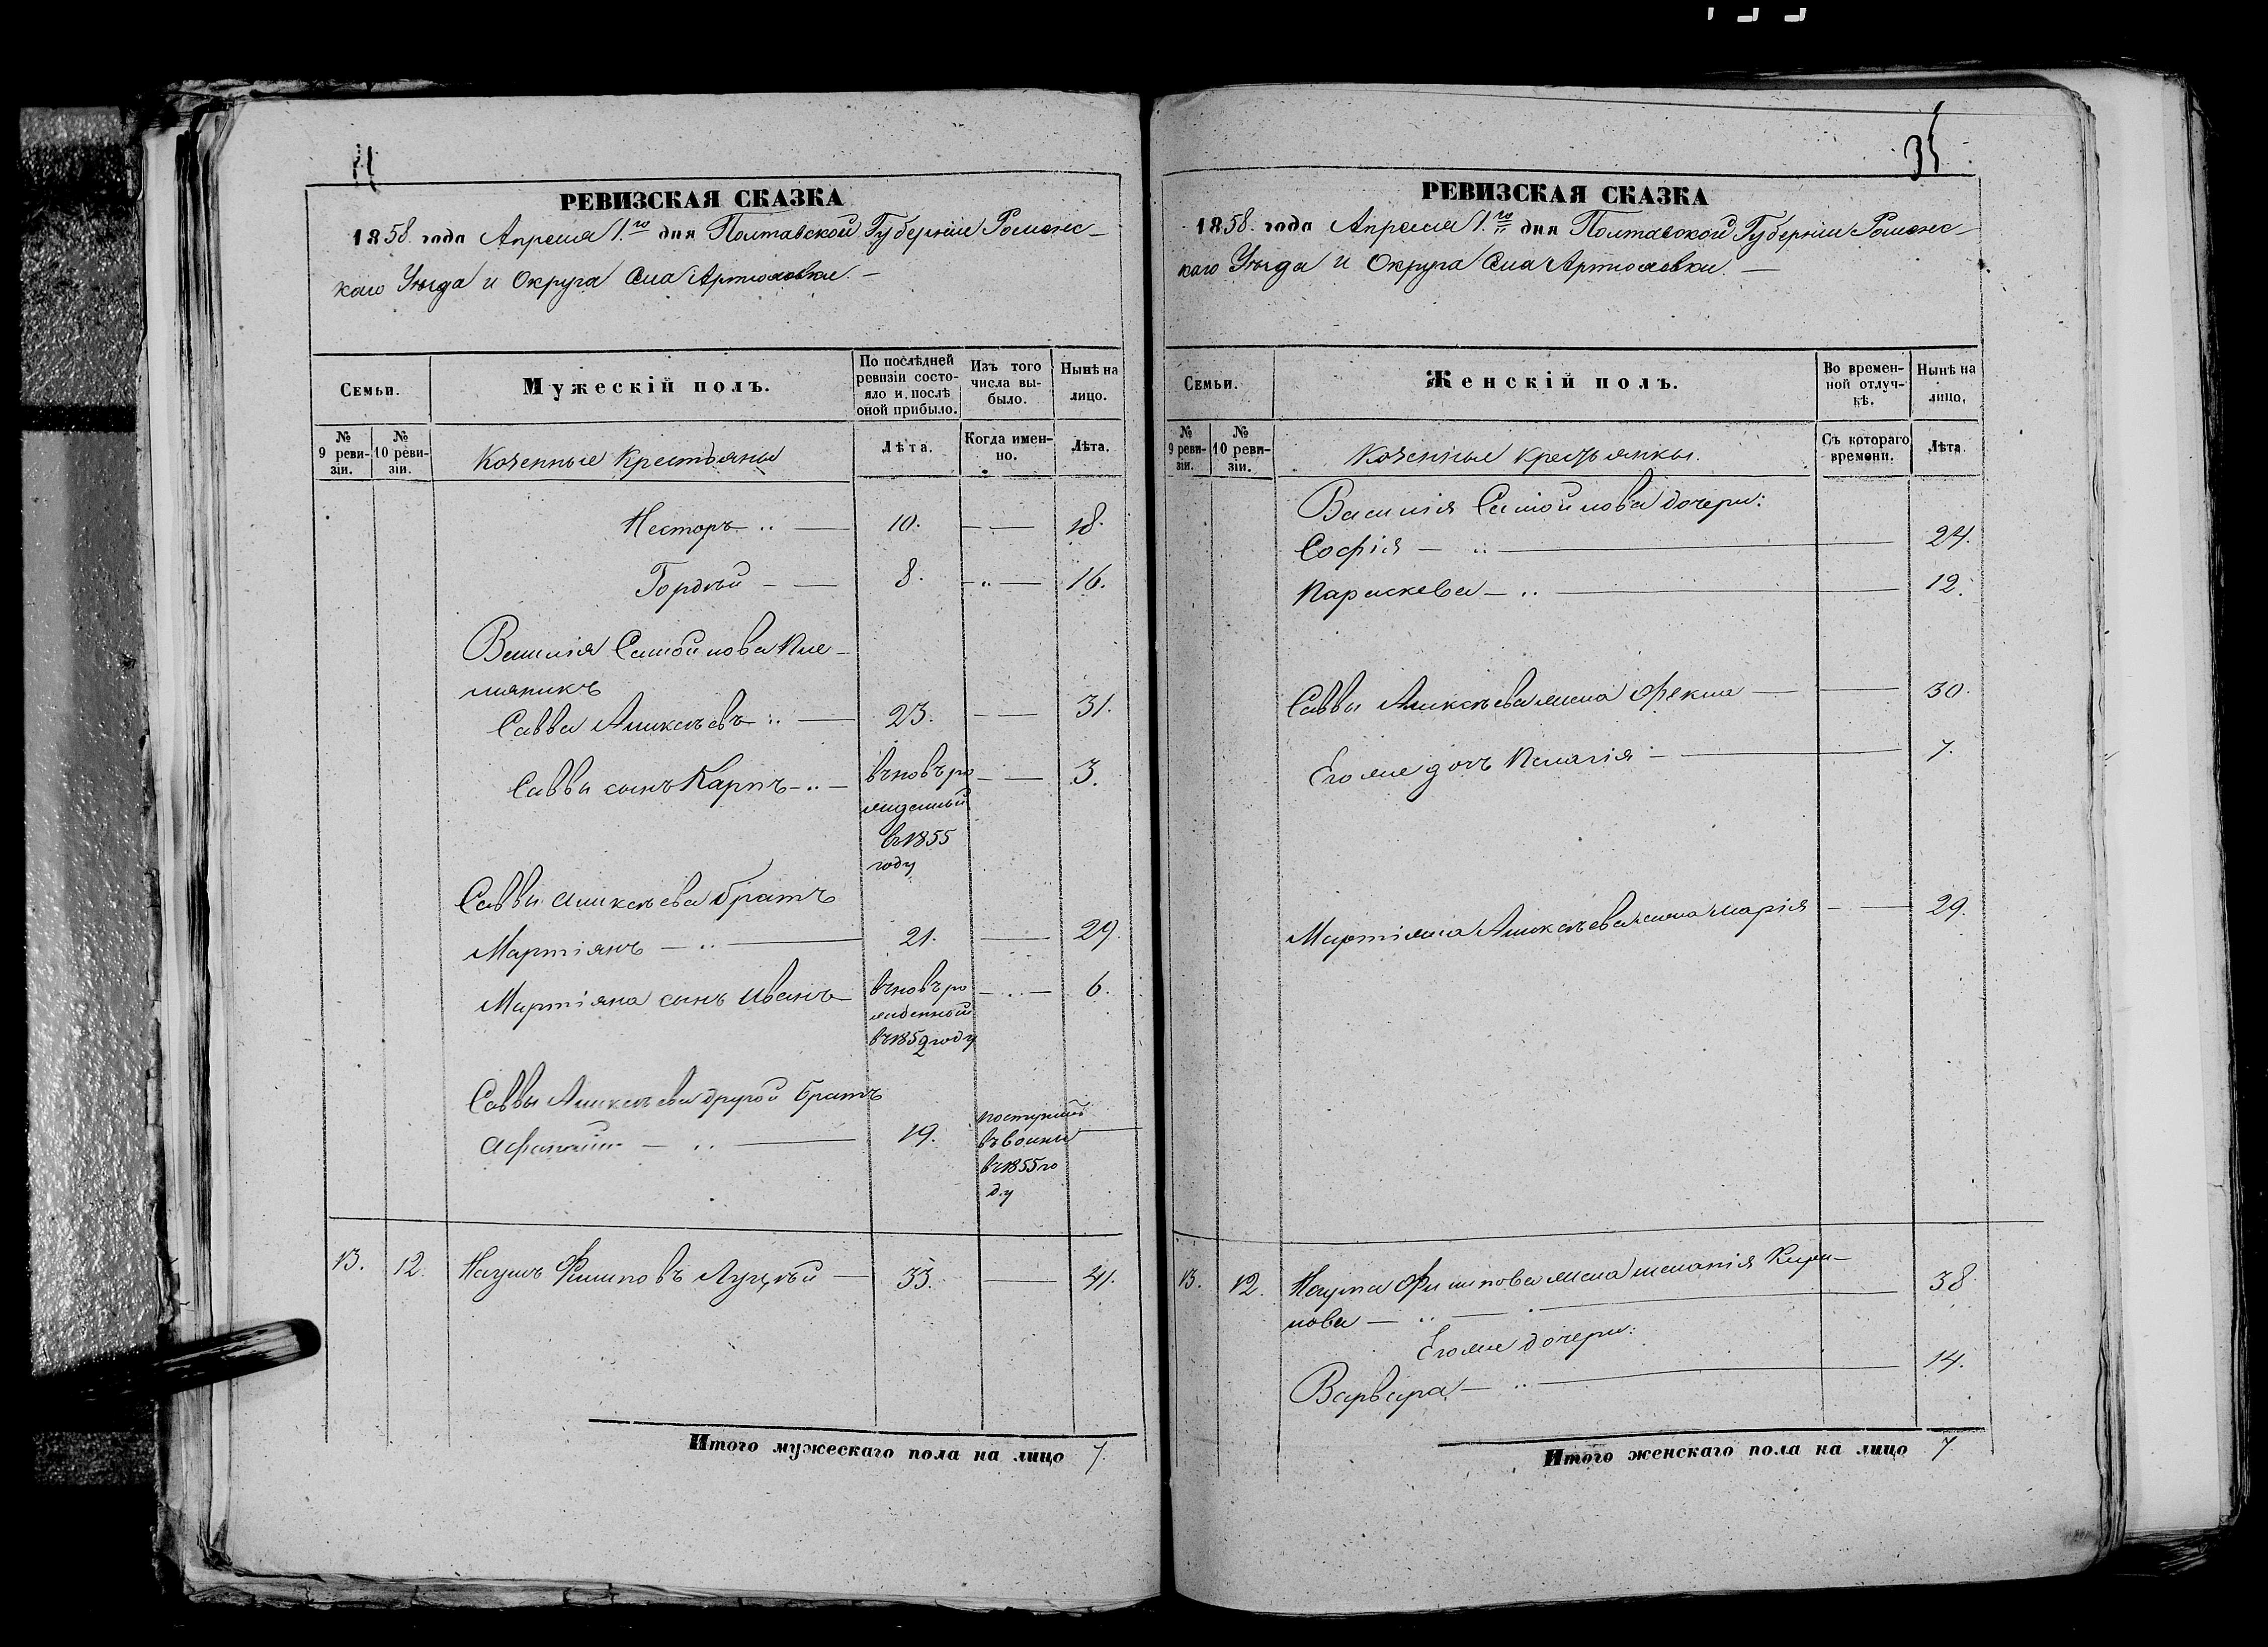 РЕВИЗСКАЯ СКАЗКА
1858 года Апреля 1.го дня Полтавской Губернии Роменс-
каго Уѣзда и Округа Села Артюховки. —
Семьи.
Мужескій полъ.
По послѣдней ревизіи состо-яло и послѣ оной прибыло.
Изъ того числа вы-было.
Нынѣ на лицо.
№ 9 реви-зіи.
№ 10 реви-зіи.
Козенные Крестьяны
Лѣта.
Когда имен-но.
Лѣта.
Несторъ 10. 18.
Гордѣй 8. 16.
Василія Самойлова Пле-
мяникъ
Савва Алексѣевъ 23. 31.
Саввы сынъ Карпъ вновь ро 3.
жденный
въ 1855
году
Саввы Алексѣева братъ
Мартіянъ 21. 29.
Мартіяна сынъ Иванъ вновь ро 6.
жденной
въ 1852 году
Саввы Алексѣева другой братъ
Афанасій 19. поступилъ
въ воины
въ 1855 го
ду
13. 12. Наумъ Филиповъ Луцкѣй 33. 41.
Итого мужескаго пола на лицо 7.
35
РЕВИЗСКАЯ СКАЗКА
1858. года Апреля 1.го дня Полтавской Губернии Роменс-
каго Уѣзда и Округа Села Артюховки. —
Семьи.
Женскій полъ.
Во времен-ной отлуч-кѣ.
Нынѣ на лицо.
№ 9 реви-зіи.
№ 10 реви-зіи.
Козенные крестьянки.
Съ котораго времени.
Лѣта.
Василія Самойлова дочери:
Софія 24.
Параскева 12.
Саввы Алексѣева жена Фекла 30.
Его же дочь Пелагія 7.
Мартіяна Алексѣева жена Марія 29.
13. 12. Наума Филипова жена Меланія Кири-
лова 38
Его же дочери:
Варвара 14.
Итого женскаго пола на лицо 7